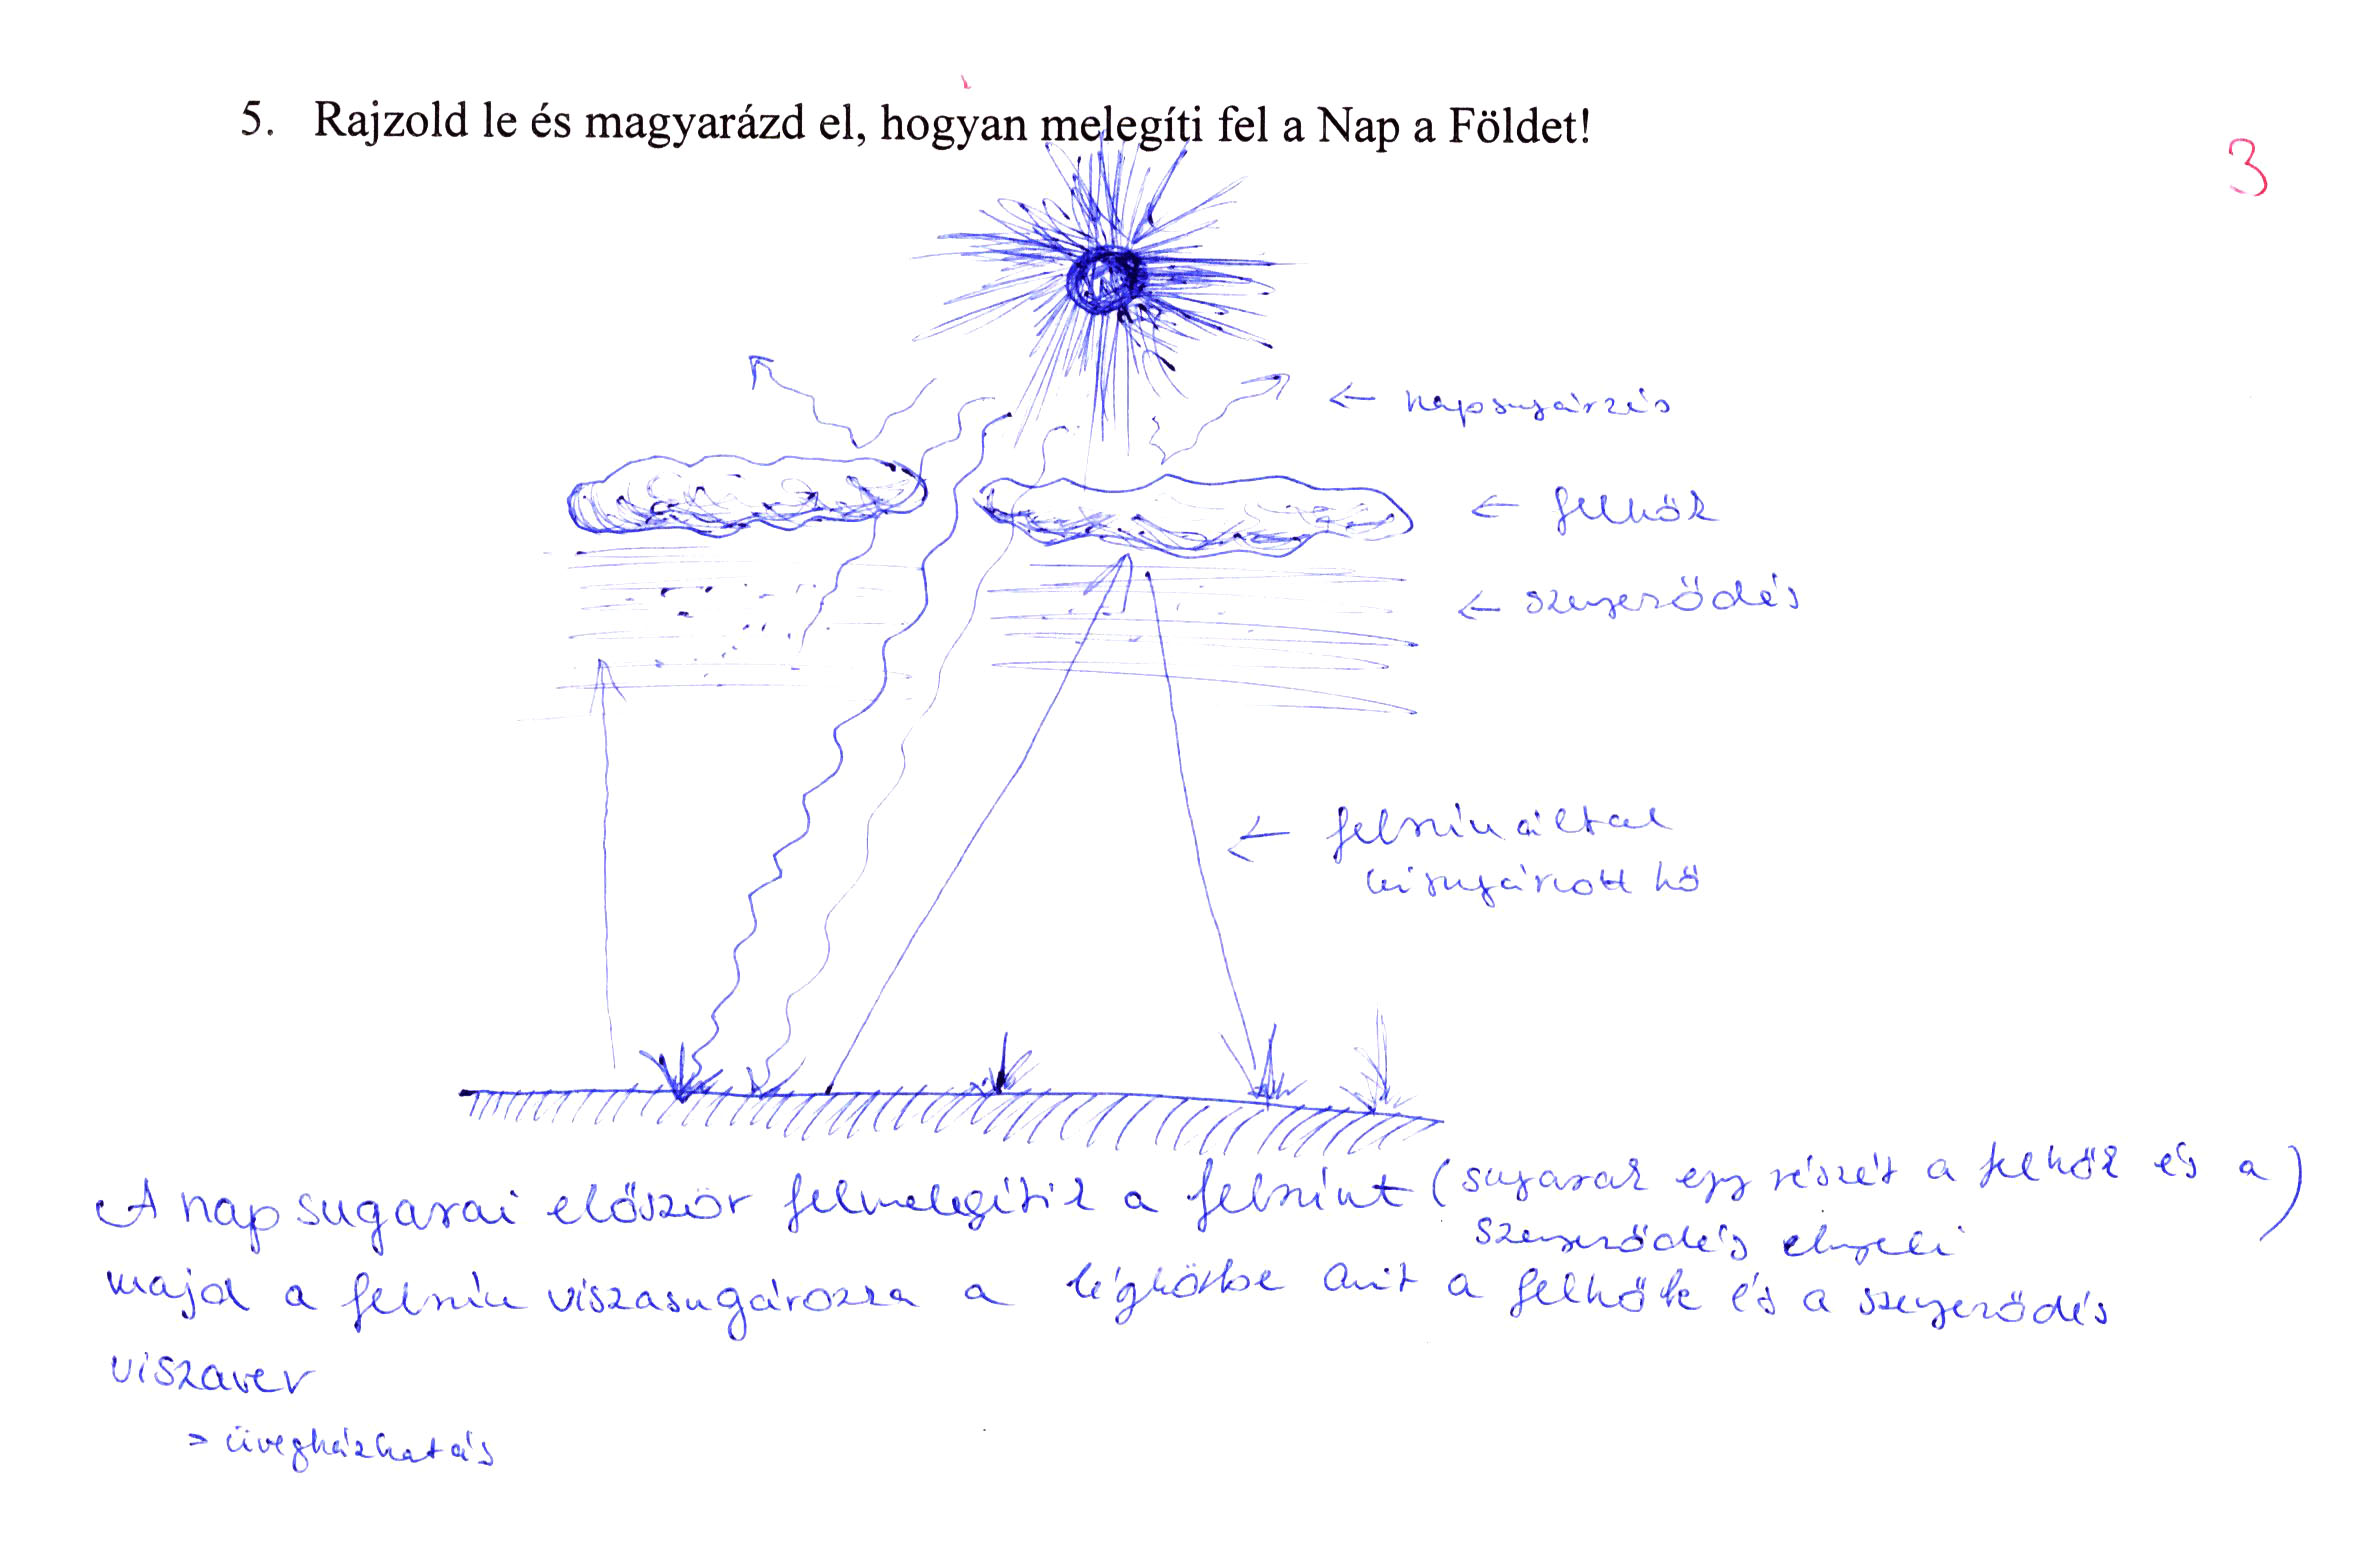 5. Rajzold le és magyarázd el, hogyan melegíti fel a Nap a Földet!
3
← napsugárzás
← felhők
← szenyerződés
← felszín által
kisugárzott hő
A nap sugarai először felmelegítik a felszínt (sugarak egy részét a felhők és a)
szenyerződés elnyeli
majd a felszín viszasugározza a légkörbe amit a felhők és a szenyerződés
viszaver
> üvegházhatás